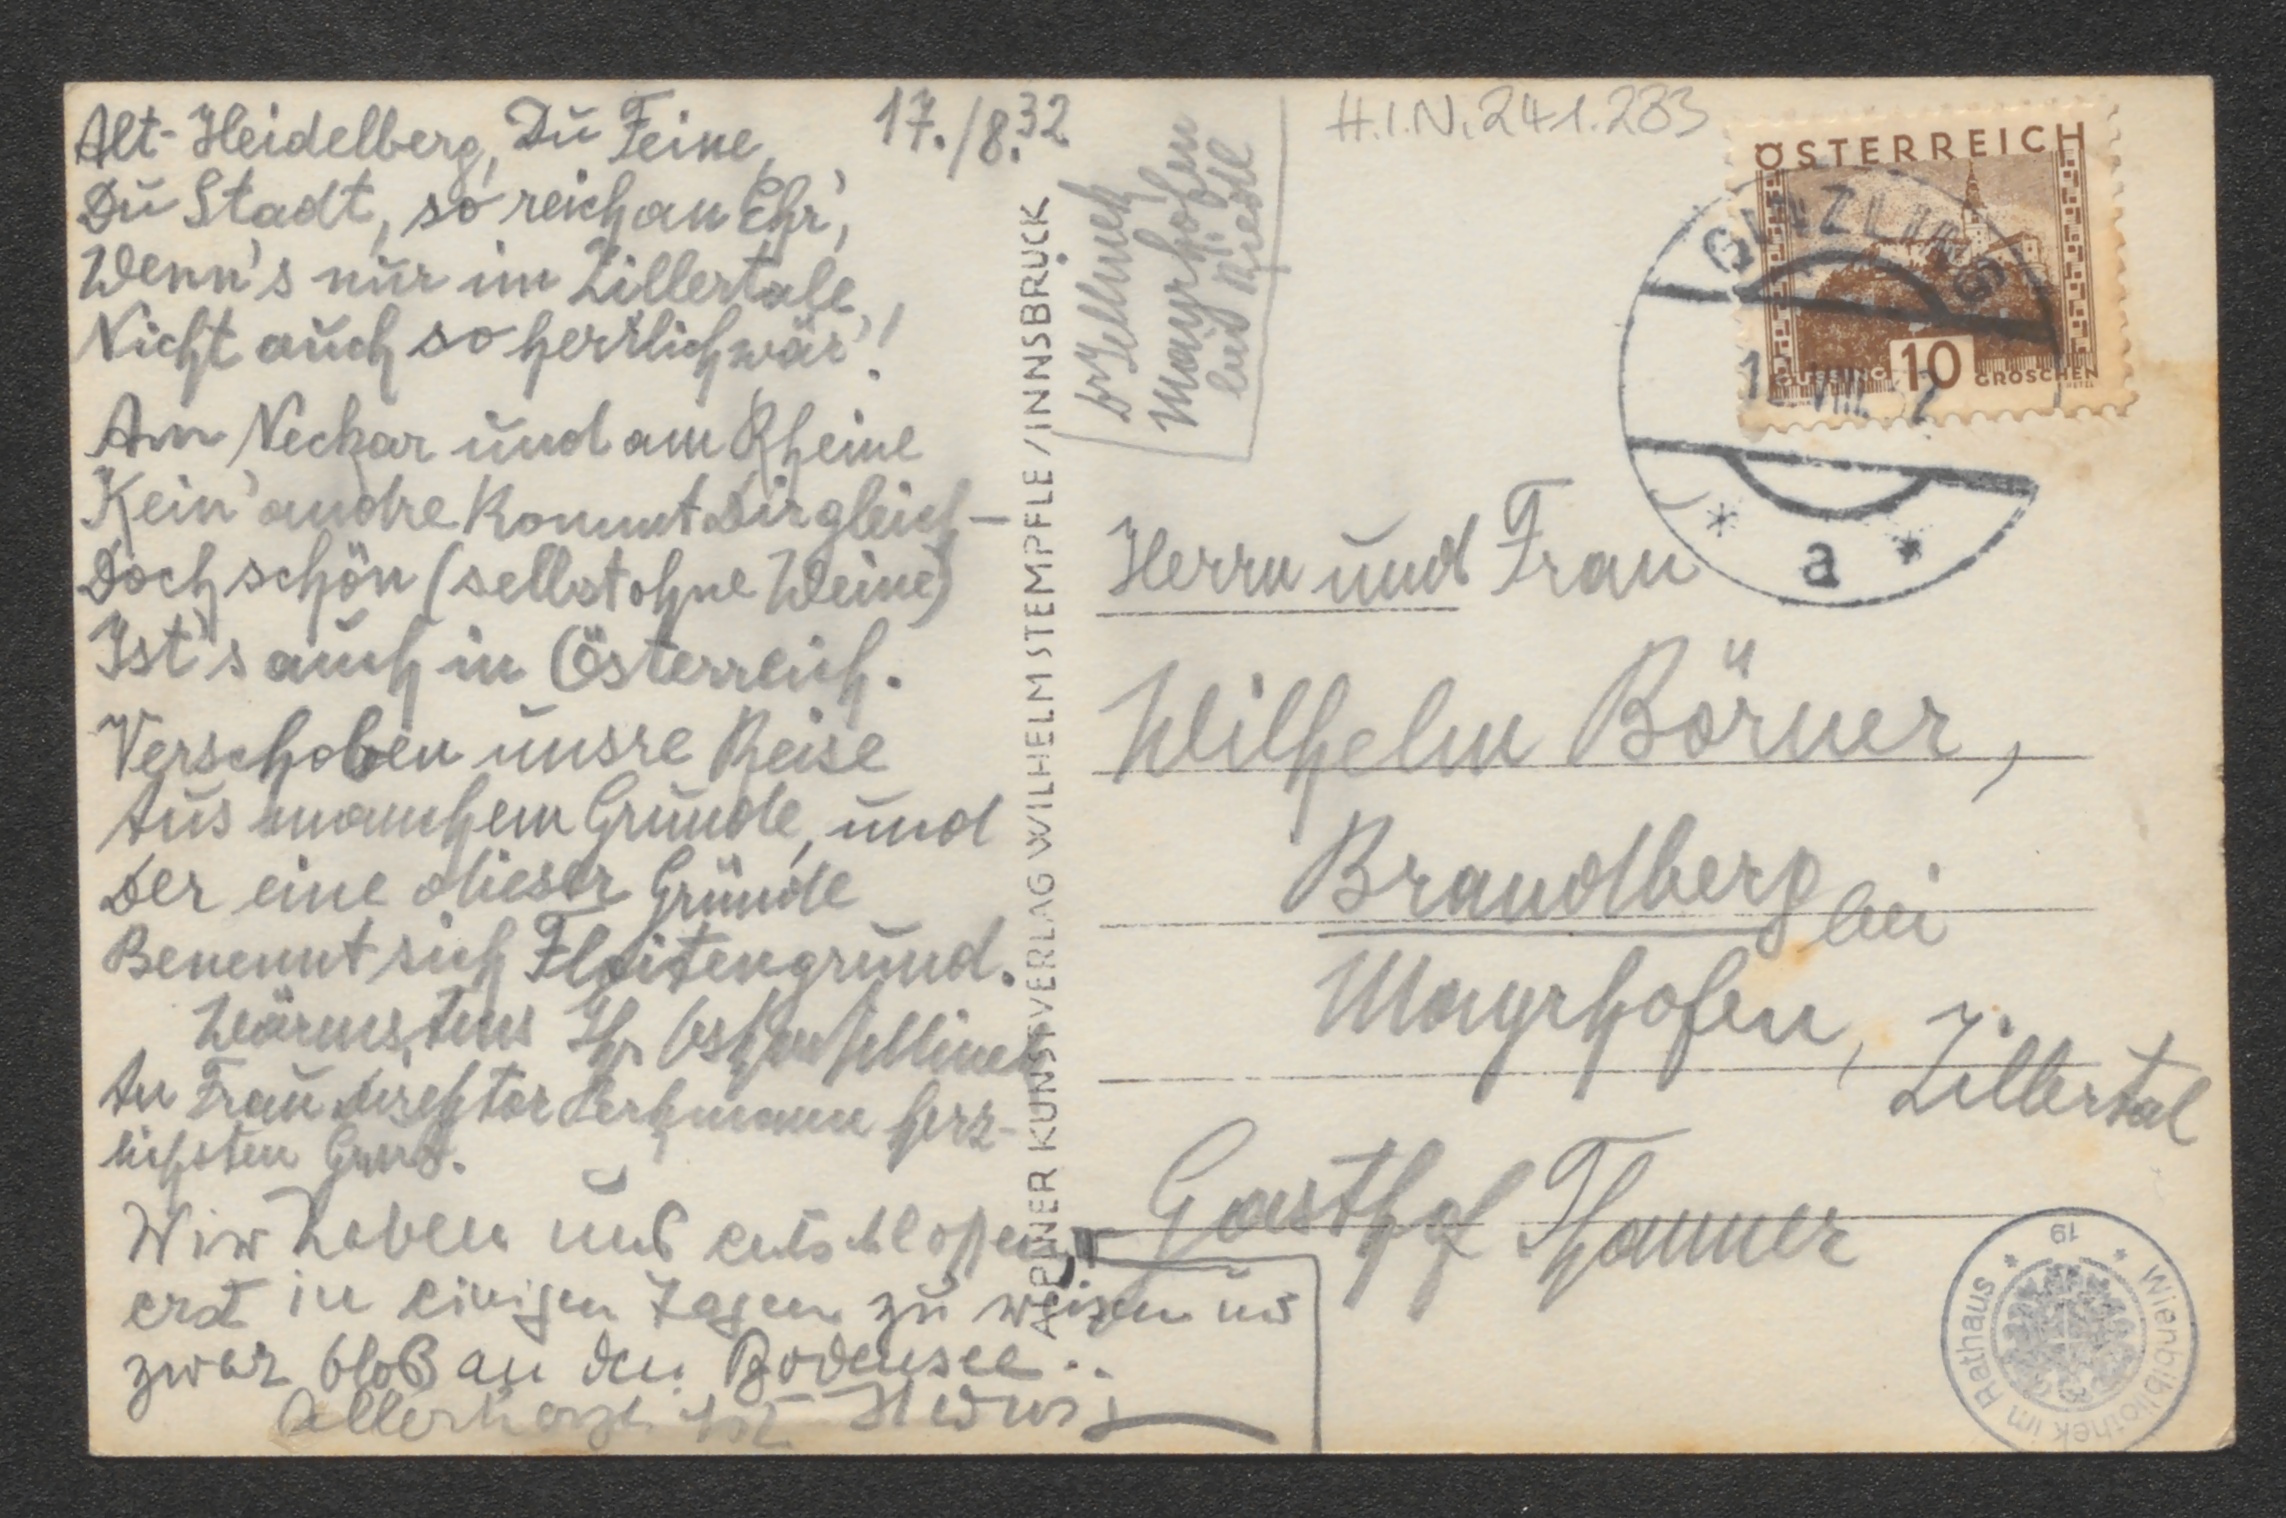 Alt-Heidelberg, Dū Feine,
17./8.32
Dū Stadt, so reich an Ehr',
Wenn's nūr im Zillertale
Nicht aūch so herrlich wär'!
Am Neckar ūnd am Rheine
Kein' andre kommt Dir gleich –
Doch schön (selbst ohne Weine)
Ist's aūch in Österreich.
Verschoben ūnsre Reise
Aūs manchem Grūnde, ūnd
Der eine dieser Gründe
Benennt sich Floitengrūnd.
Wärmstens Ihr Oskar Jellinek
An Fraū Direktor herz-
lichsten Grūß.
Wir haben ūns entschlossen,
erst in einigen Tagen zū reisen ūnd
zwar bloß an den Bodensee..
Allerherzlichst Hedwig
ALPINER KUNSTVERLAG WILHELM STEMPFLE / INNSBRUCK
br Jellinek
Mayrhofen
bei Riedl
H.I.N. 241.283
ÖSTERREICH
GÜSSING 10 GROSCHEN
GINZLING
VIII 32
* a *
Herrn ūnd Fraū
Wilhelm Börner,
Brandberg bei
Mayrhofen, Zillertal
Gasthof Thanner
Wienbibliothek im Rathaus
19